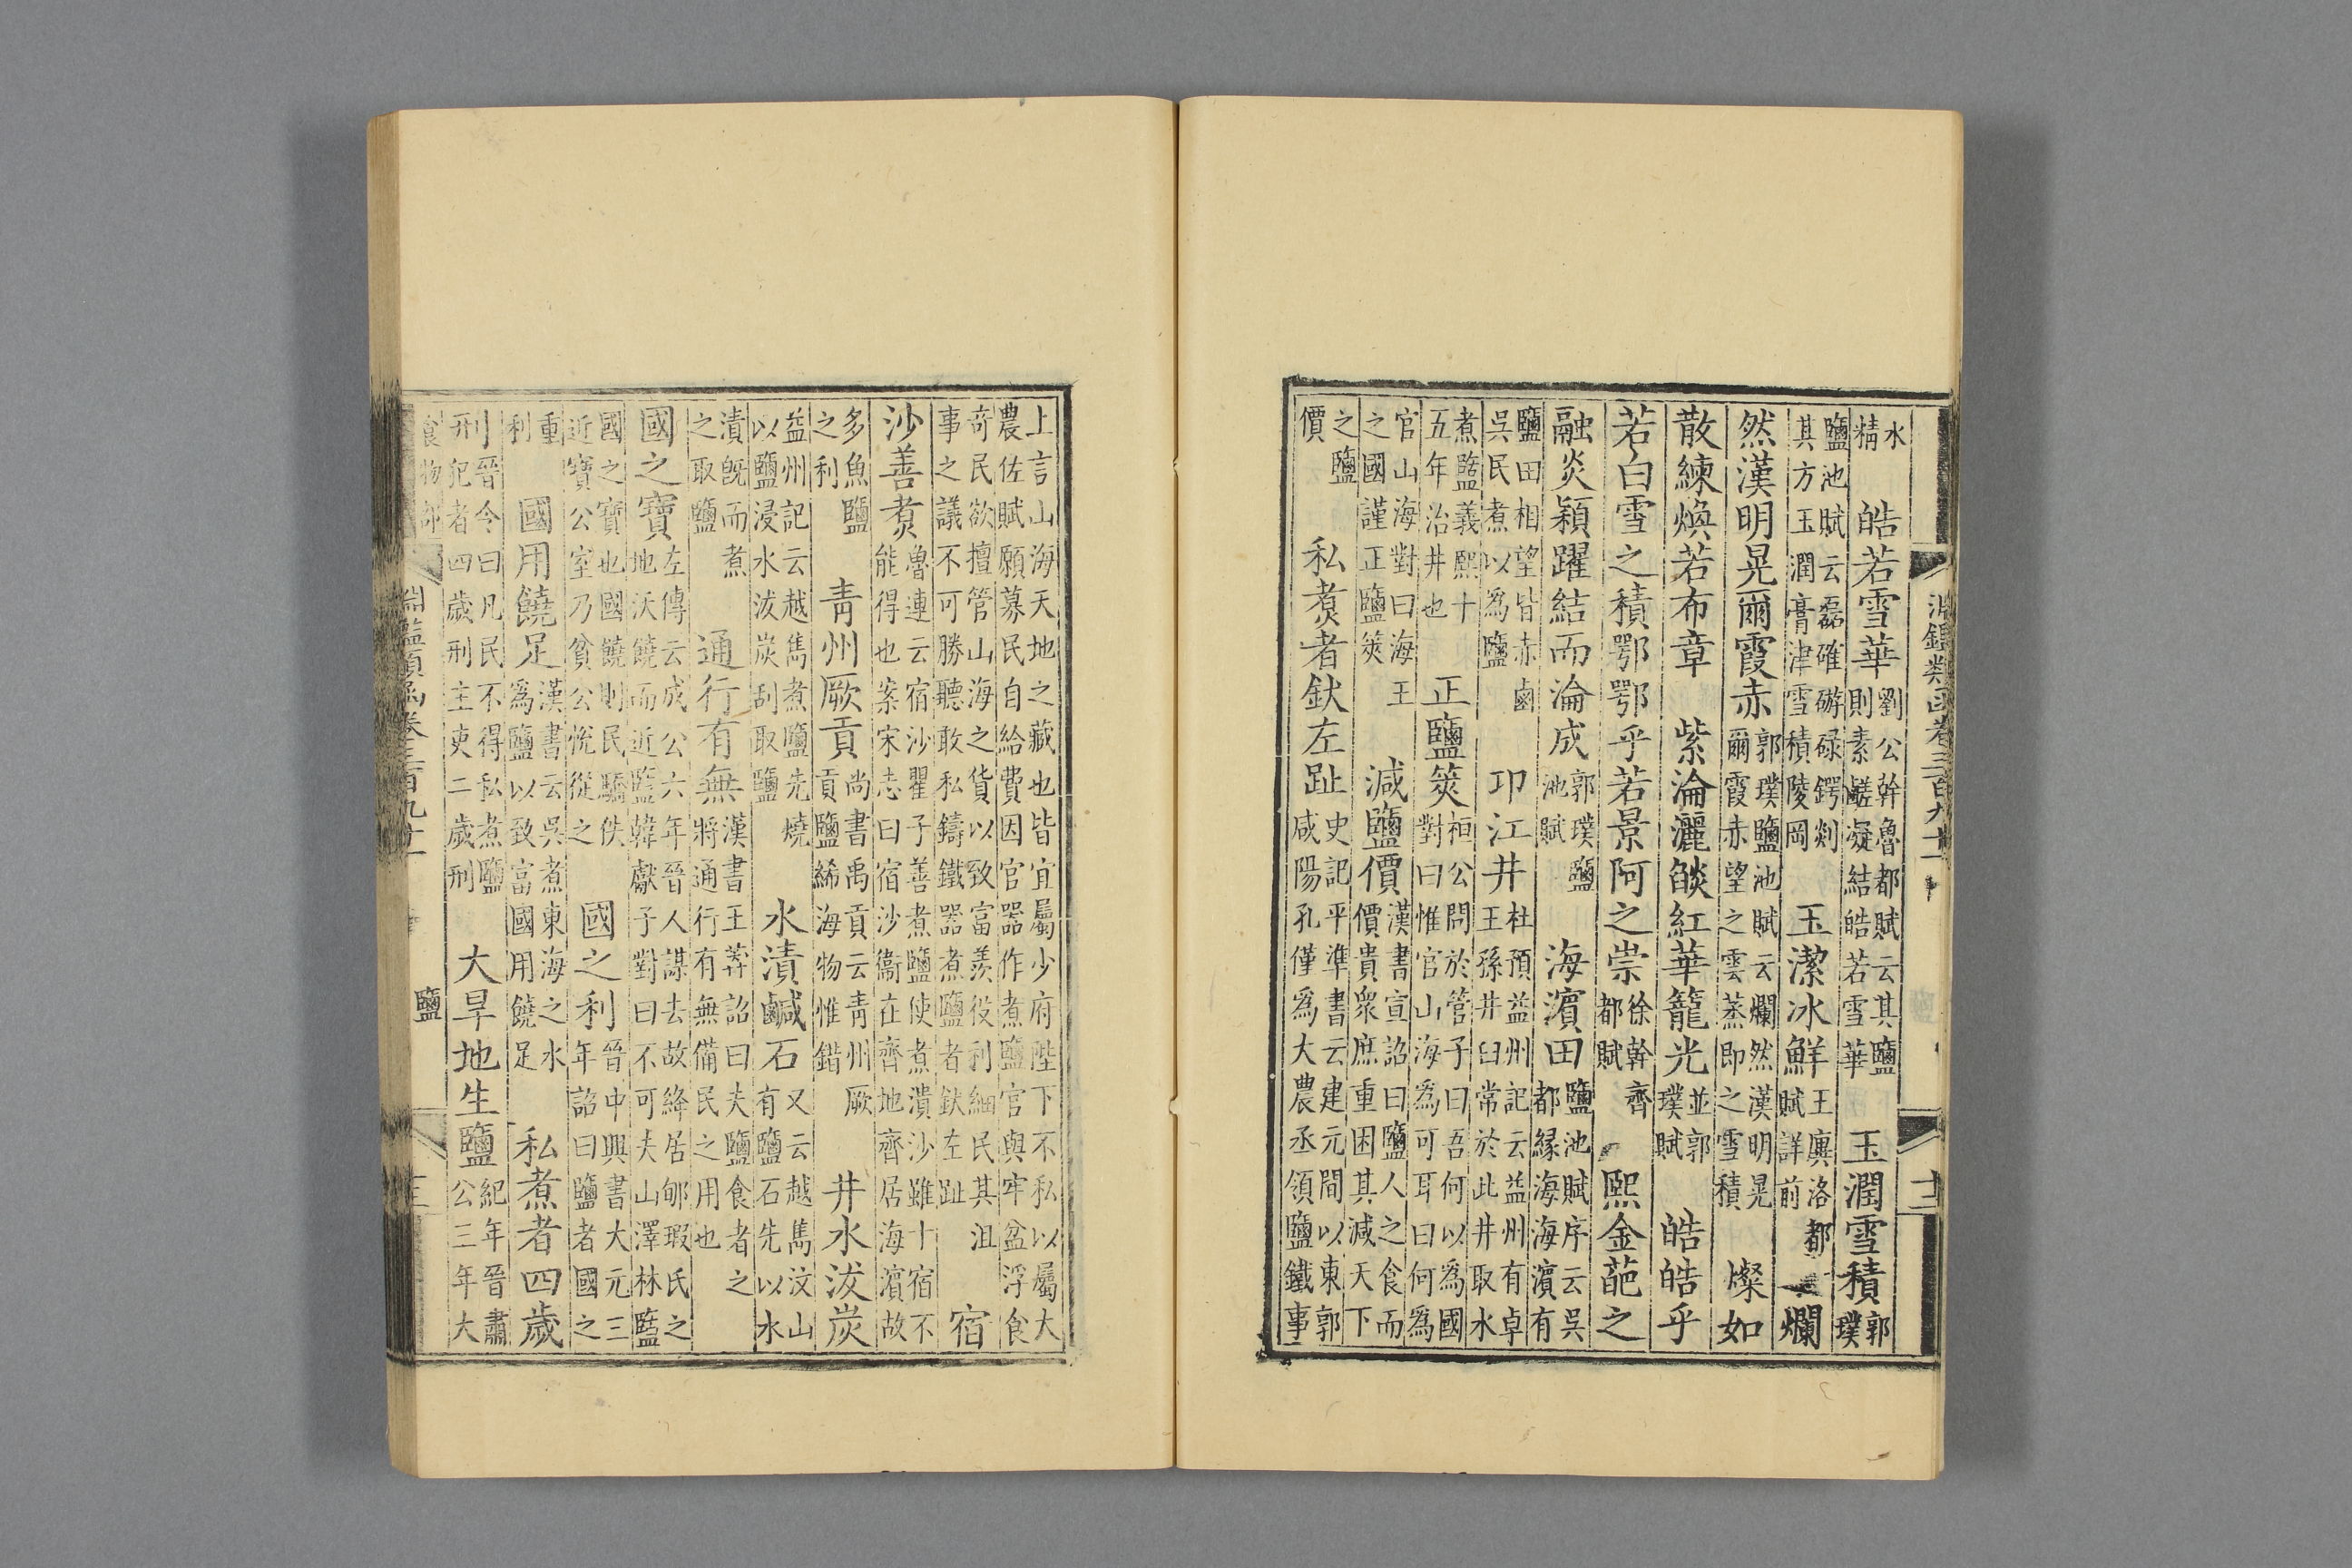 淵鑑類函卷三百九十一 十二
水精 皓若雪華 劉公幹魯都賦云其鹽則素鹺凝結皓若雪華 玉潤雪積 郭璞
鹽池賦云磊碓碌鍔剡其方玉潤膏津雪積陵岡 玉潔冰鮮 王廙洛都賦詳前 爛
然漢明晃爾霞赤 郭璞鹽池賦云爛然漢明晃爾霞赤望之雲蒸即之雪積 燦如
散練煥若布章 紫淪灑餤紅華籠光 並郭璞賦 皓皓乎
若白雪之積鄂鄂乎若景阿之崇 徐幹齊都賦 熙金葩之
融炎穎躍結而淪成 郭璞鹽池賦 海濵田 鹽池賦序云吳都緣海海濵有
鹽田相望皆赤鹵吳民煮以為鹽 卭江井 杜預益州記云益州有卓王孫井臼常於此井取水
煮鹽義熙十五年治井也 正鹽筴 桓公問於管子曰吾何以為國對曰惟官山海為可耳曰何為
官山海對曰海王之國謹正鹽筴 減鹽價 漢書宣詔曰鹽人之食而價貴衆庶重困其減天下
之鹽價 私煑者釱左趾 史記平準書云建元間以東郭咸陽孔僅為大農丞領鹽鐵事
上言山海天地之藏也皆宜屬少府陛下不私以屬大農佐賦願募民自給費因官器作煮鹽官與牢盆浮食
奇民欲擅管山海之貨以致富羨役利細民其沮事之議不可勝聽敢私鑄鐵器煮鹽者釱左趾 宿
沙善煑 魯連云宿沙瞿子善煮鹽使煮漬沙雖十宿不能得也案宋志曰宿沙衞在齊地齊居海濵故
多魚鹽之利 青州厥貢 尚書禹貢云青州厥貢鹽絺海物惟錯 井水潑炭
益州記云越雋煮鹽先燒以鹽浸水潑炭刮取鹽 水漬鹹石 又云越雋汶山有鹽石先以水
漬旣而煮之取鹽 通行有無 漢書王莽詔曰夫鹽食者之將通行有無備民之用也
國之寶 左傳云成公六年晉人謀去故絳居郇瑕氏之地沃饒而近鹽韓獻子對曰不可夫山澤林鹽
國之寶也國饒則民驕佚近寶公室乃貧公悅從之 國之利 晉中興書大元三年詔曰鹽者國之
重利 國用饒足 漢書云吳煮東海之水為鹽以致富國用饒足 私煮者四歲
刑 晉令曰凡民不得私煮鹽犯者四歲刑主吏二歲刑 大旱地生鹽 紀年晉肅公三年大
食物部 淵鑑類函卷三百九十一 鹽 十三